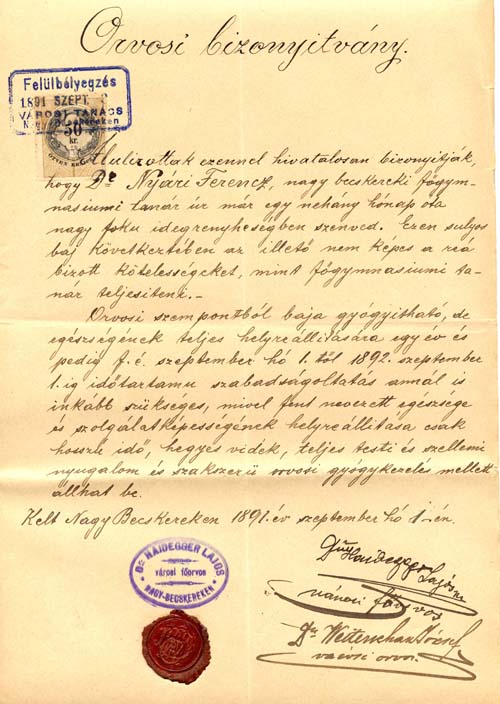 Orvosi bizonyitvány.
Felülbélyegzés
1891 SZEPT. 3
VÁROSI TANÁCS
N. Becskereken
50
kr.
Alulirottak ezennel hivatalosan bizonyitják,
hogy Dr Nyári Ferencz, nagy becskereki főgym-
nasiumi tanár úr már egy nehány hónap óta
nagy foku idegenyheségben szenved. Ezen sulyos
baj következtében az illető nem képes a reá
bizott kötelességeket, mint főgymnasiumi ta-
nár teljesiteni.-
Orvosi szempontból baja gyógyitható, de
egészségének teljes helyreállitására egy év és
pedig f. é. szeptember hó 1. től 1892. szeptember
1. ig időtartamu szabadságoltatás annál is
inkább szükséges, mivel fent nevezett egészsége
és szolgálatképességének helyreállitása csak
hosszu idő, hegyes vidék, teljes testi és szellemi
nyugalom és szakszerü orvosi gyógykezelés mellett
állhat be.
Kelt Nagy Becskereken 1891. év szeptember hó 1-én.
Dr HAIDEGGER LAJOS
városi főorvos
NAGY-BECSKEREKEN
Haidegger Lajos
városi főorvos
Dr
városi orvos.